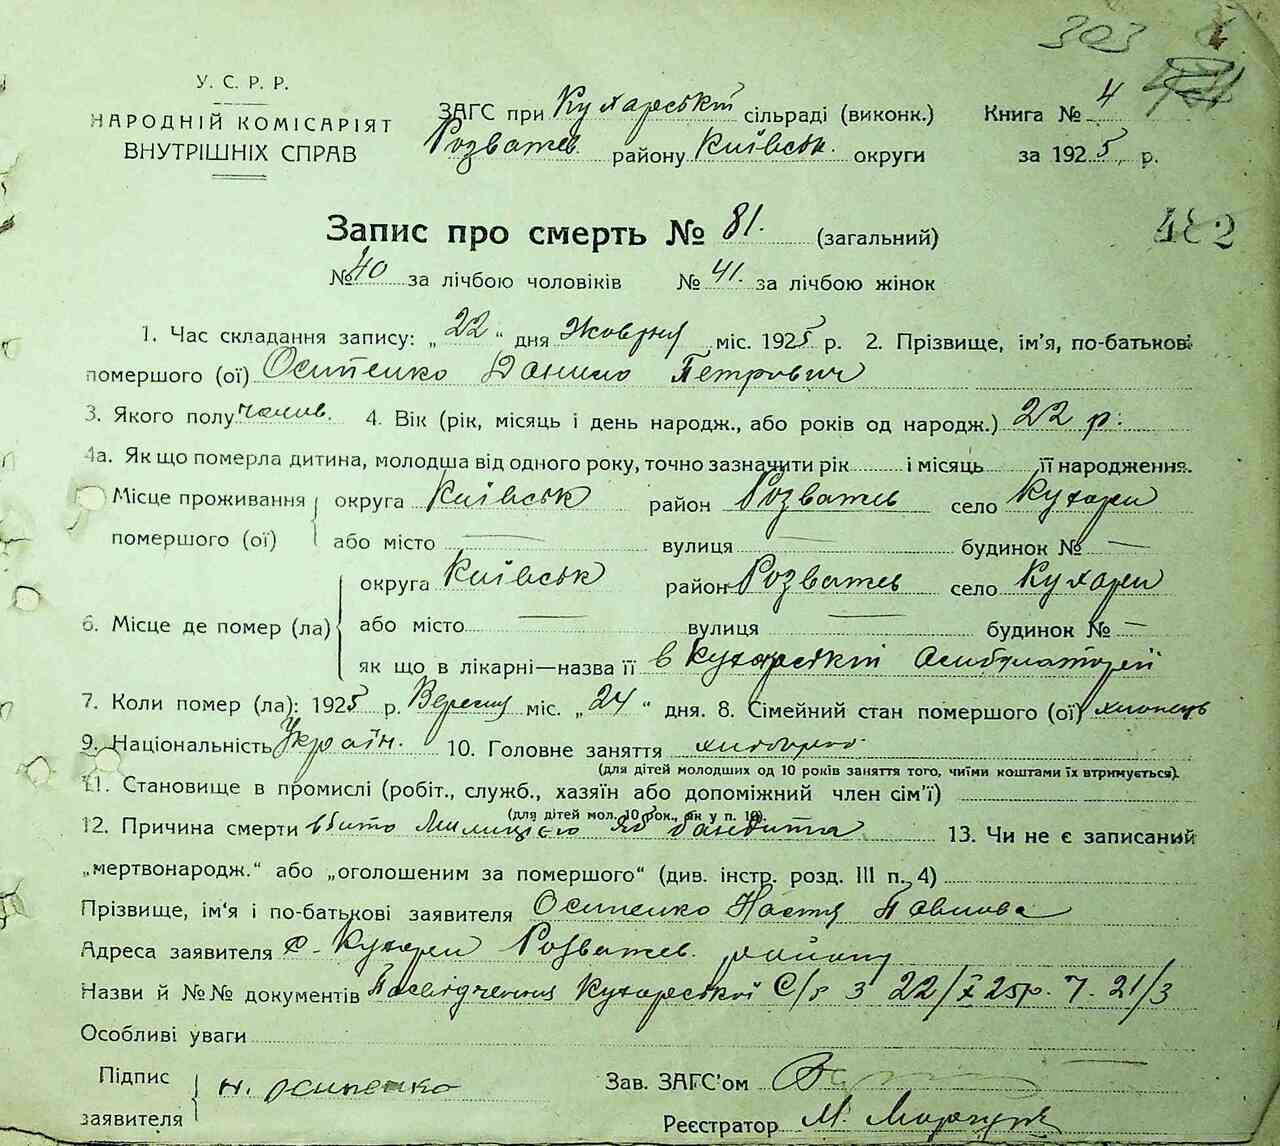 303
У. С. Р. Р.
НАРОДНІЙ КОМІСАРІЯТ
ВНУТРІШНІХ СПРАВ
ЗАГС при Кухарській сільраді (виконк.)
Розважев. району Київськ. округи
Книга № 4
за 1925 р.
Запис про смерть № 81. (загальний)
482
№ 40 за лічбою чоловіків № 41. за лічбою жінок
1. Час складання запису: „22“ дня Жовтня міс. 1925 р. 2. Прізвище, ім'я, по-батькові
помершого (ої) Осипенко Данило Петрович
3. Якого полу чолов. 4. Вік (рік, місяць і день народж., або років од народж.) 22 р.
4а. Як що померла дитина, молодша від одного року, точно зазначити рік і місяць її народження.
Місце проживання округа Київськ район Розважев село Кухари
помершого (ої) або місто — вулиця — будинок № —
округа Київськ район Розважев село Кухари
6. Місце де помер (ла) або місто — вулиця — будинок № —
як що в лікарні—назва її в Кухарській Амбулаторії
7. Коли помер (ла): 1925 р. Вересня міс. „24“ дня. 8. Сімейний стан помершого (ої) хлопець
9. Національність Україн. 10. Головне заняття хлібороб
(для дітей молодших од 10 років заняття того, чиїми коштами їх втримується).
11. Становище в промислі (робіт., служб., хазяїн або допоміжний член сім'ї)
(для дітей мол. 10 рок., як у п. 10).
12. Причина смерти вбито Милицією як бандита 13. Чи не є записаний
„мертвонародж.“ або „оголошеним за помершого“ (див. інстр. розд. III п. 4)
Прізвище, ім'я і по-батькові заявителя Осипенко Настя Павлова
Адреса заявителя с. Кухари Розважев. району
Назви й №№ документів Посвідчення Кухарської С/р з 22/X 25р. 21/3
Особливі уваги
Підпис
заявителя Н. Осипенко
Зав. ЗАГС'ом
Реєстратор М.